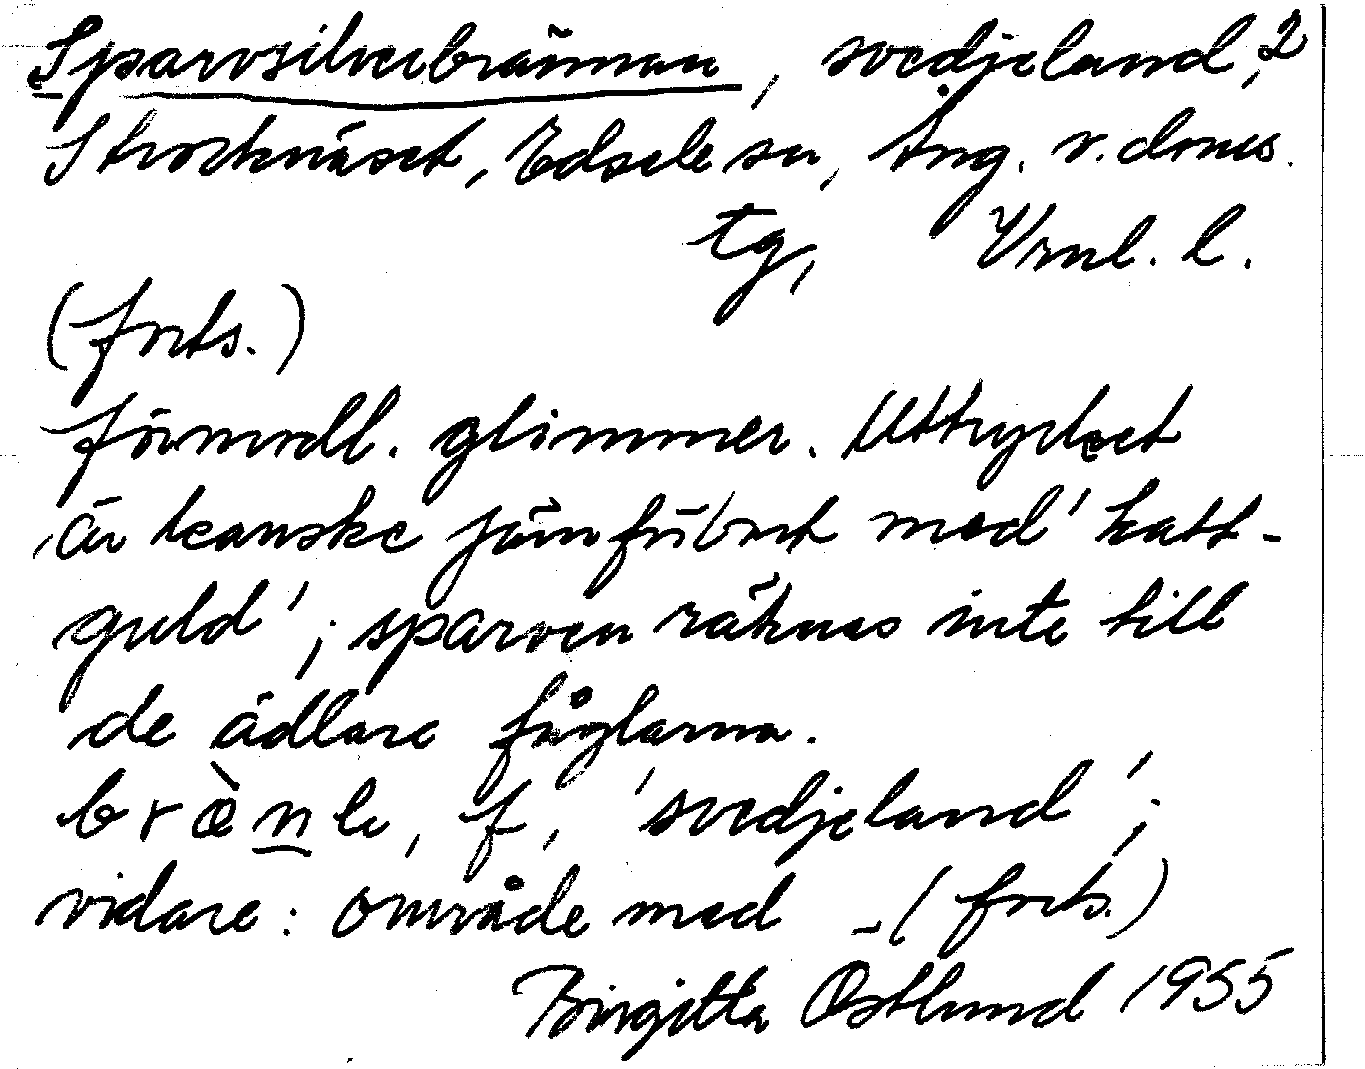 Sparvsilverbrännan, svedjeland, 2
Strocknäset, Edsele sn, Ång. v. doms.
tg, Vrml. l.
(forts.)
förmodl. glimmer. Uttrycket
är kanske jämförbart med 'katt-
guld'; sparven räknas inte till
de ädlare fåglarna.
bræ̀nle, f, 'svedjeland';
vidare: område med -(forts.)
Birgitta Östlund 1955